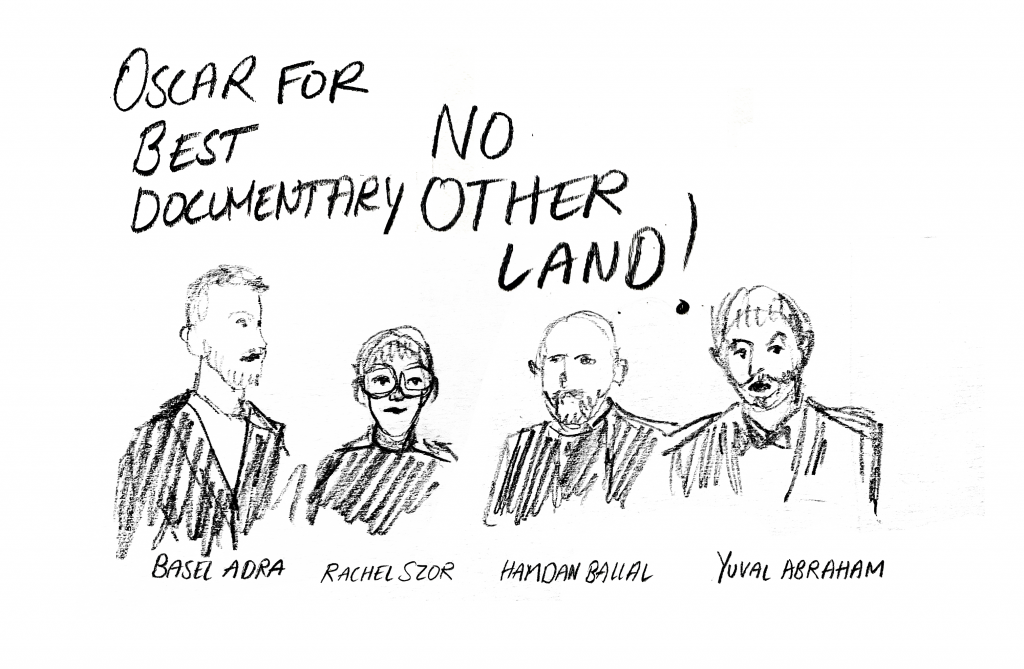 OSCAR FOR
BEST
DOCUMENTARY
NO
OTHER
LAND!
BASEL ADRA
RACHEL SZOR
HAMDAN BALLAL
YUVAL ABRAHAM